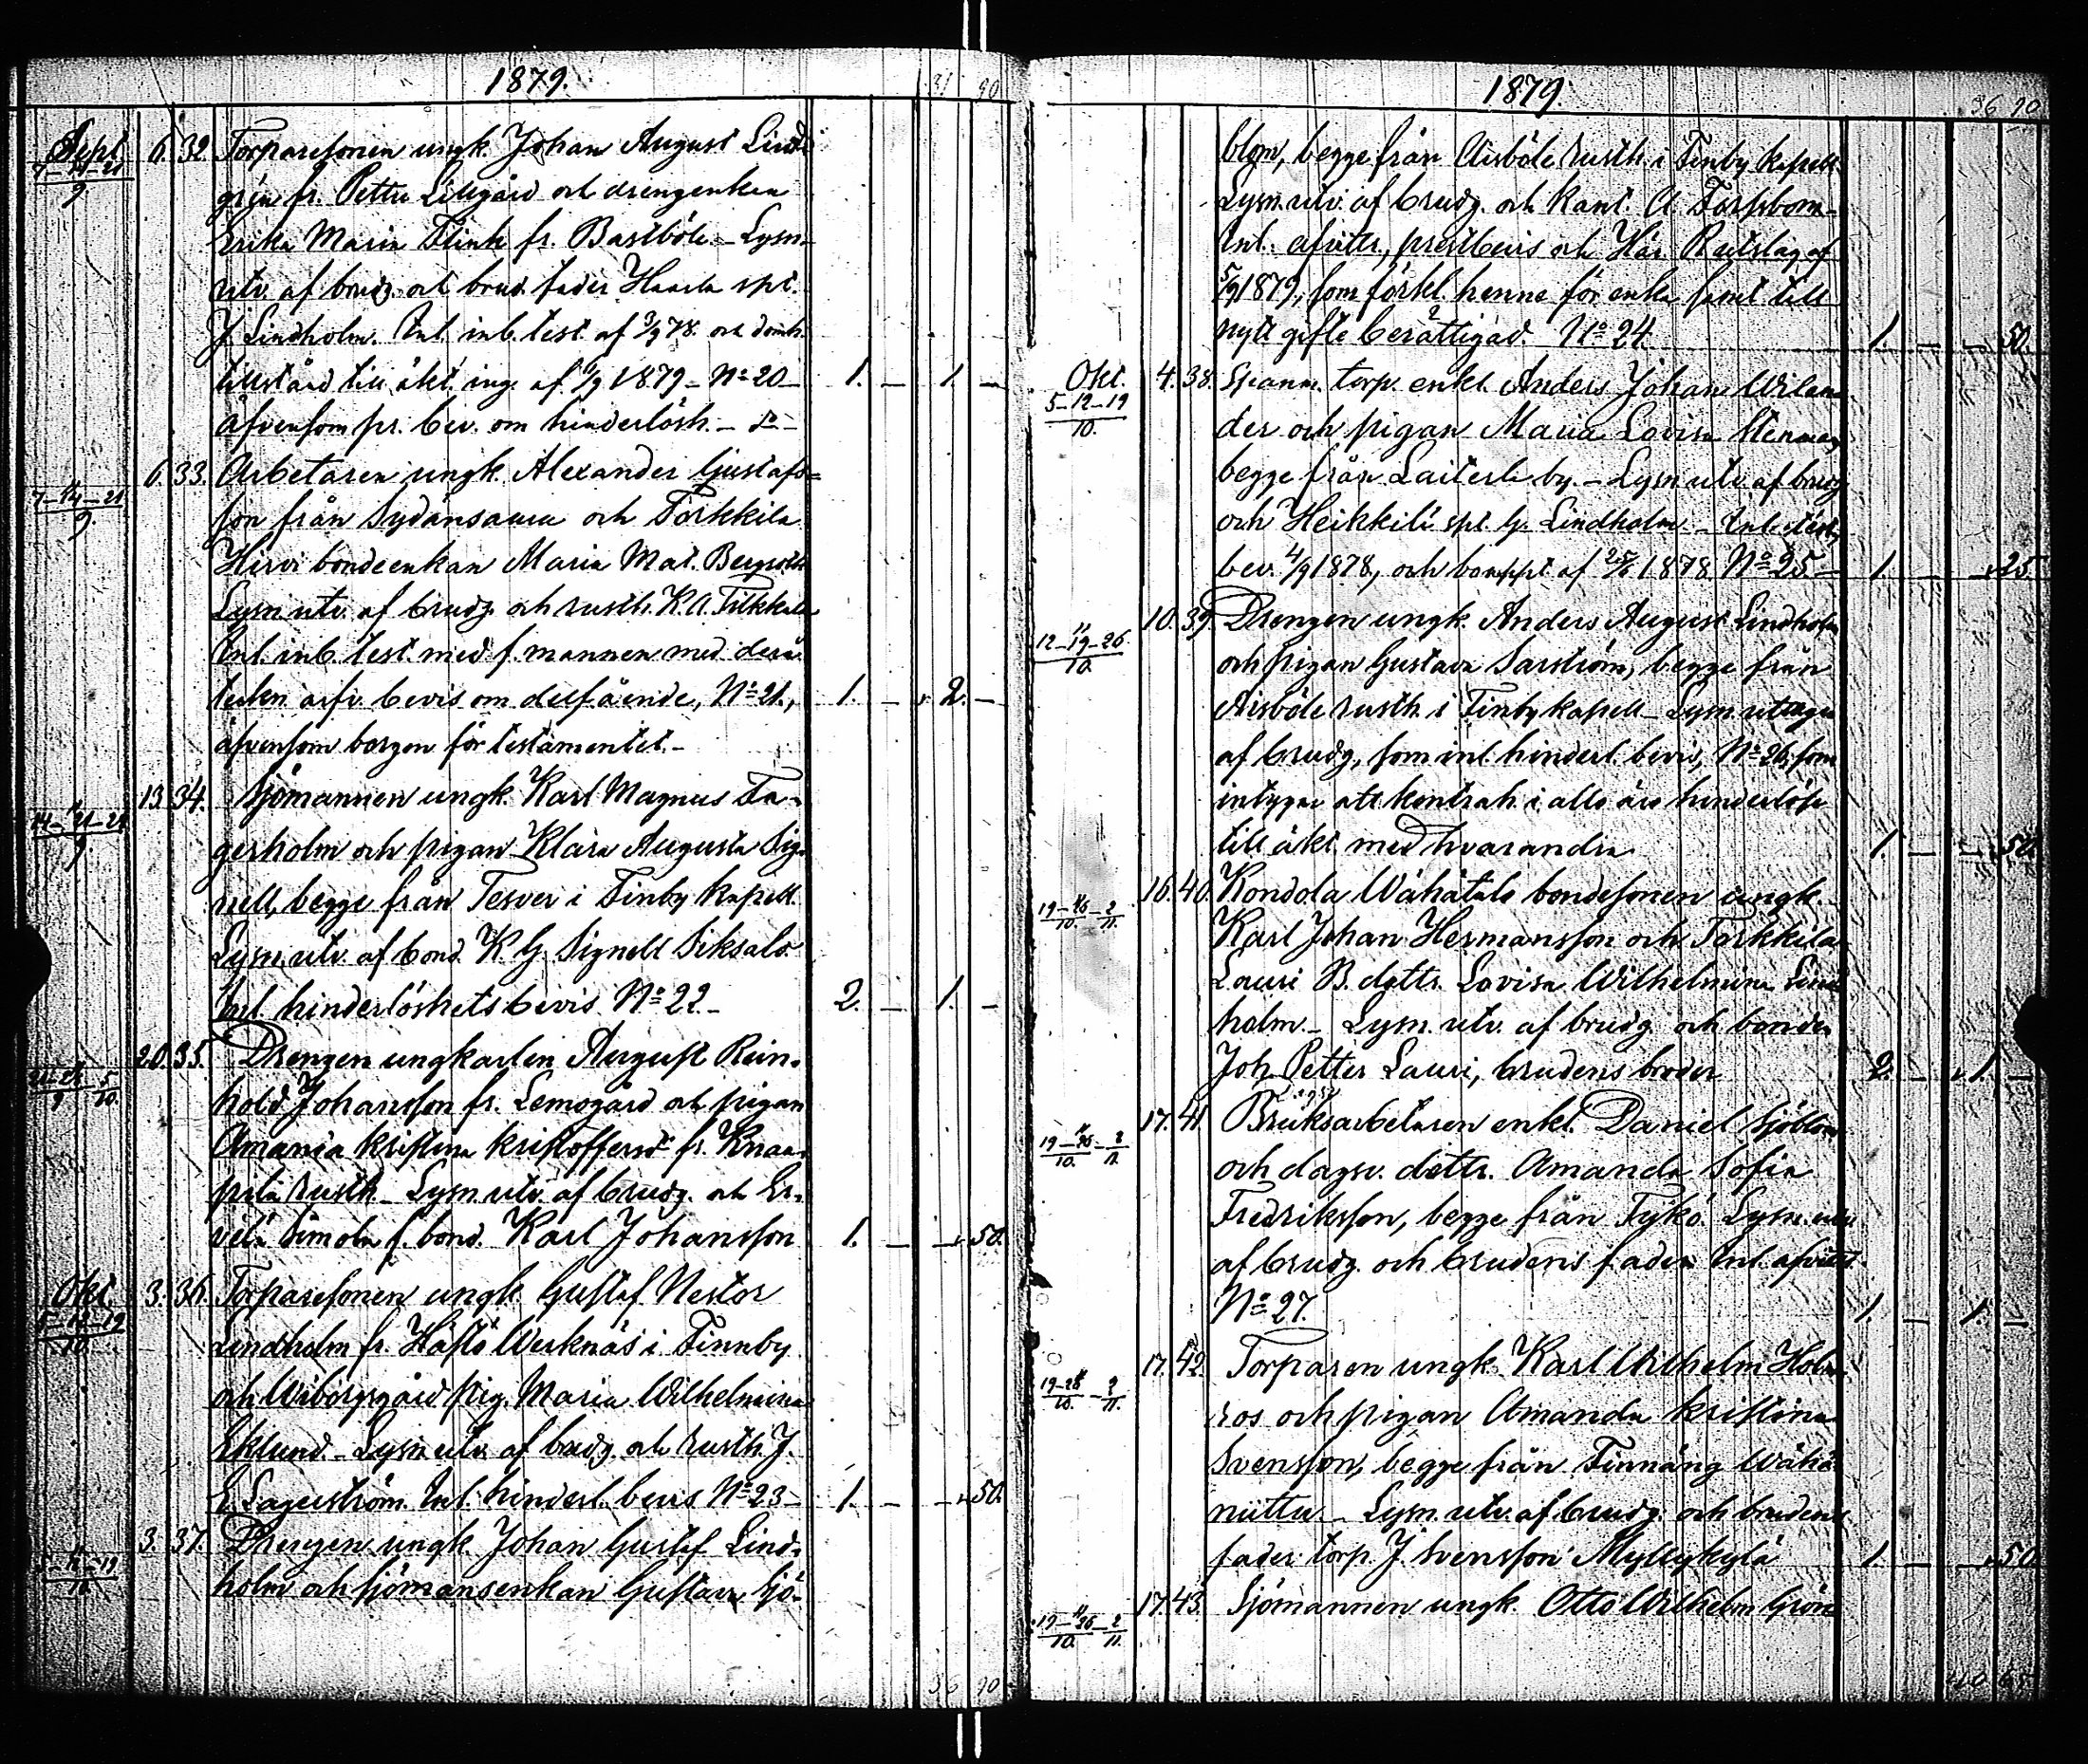 1879.
31 90
Sept. 6. 32. Torparesonen ungk. Johan August Lind-
7-14-21/9 grén fr. Pettu Lillgård och drengenkan
Erika Maria Flink fr. Bastböle. - Lysn.
utv. af brudg. och brud. fader Haarla spl.
J. Lindholm. Inl. inb. test. af 3/9 78. och domh.
tillstånd till äkt. ing. af 1879 - No 20 - 1. - 1. -
äfvensom pr. bev. om hinderlösh. - do -
6. 33. Arbetaren ungk. Alexander Gustafs-
7-14-21/9. son från Sydänsaura och Torkkila
Hirvi bondeenkan Maria Mat.
Lysn. utv. af brudg. och rusth. K. A.
Inl. inb. test. med f. mannen med derå
tekn. arfv. bevis om delfående, No 21., 1. - 2. -
äfvensom borgen för testamentet. -
13. 34. Sjömannen ungk. Karl Magnus Fa-
14-21-28/9 gerholm och pigan Klara Augusta Sig-
nell, begge från Tesver i Finby kapell.
Lysn. utv. af bond. K. G. Signell Siksalo.
Inl. hinderlöshetsbevis No 22. - 2. - 1. -
20. 35. Drengen ungkarlen August Rein-
21-28/9 5/10. hold Johansson fr. Lemogård och pigan
Amanda Kristina Kristoffersdr fr. Knaa-
pila rusth. - Lysn. utv. af brudg. och Er-
velä Simola f. bond. Karl Johansson 1. - - 50.
Okt. 3. 36. Torparesonen ungk. Gustaf Nestor
5-12-19/10. Lindholm fr. Häftö Werknäs i Finnby
och Wiborgsgård pig. Maria Wilhelmina
Eklund. - Lysn. utv. af brudg. och rusth. J.
E. Lagerström. Inl. hinderl. bevis No 23 - 1. - - 50.
3. 37. Drengen ungk. Johan Gustaf Lind-
5-12-19/10 holm och sjömansenkan Gustava Sjö-
36 90
1879.
36 90
blom, begge från Aisböle rusth. i Finby kapell.
Lysn. utv. af brudg. och kant. A. Torpbom -
Inl. afvittr., prestbevis och Här. Rutslag af
5/9 1879, som förkl. henne för enka samt till
nytt gifte berättigad. No 24. 1. - - 50.
Okt. 4. 38. Spanm. torp. enkl. Anders Johan Wilan-
5-12-19/10. der och pigan Maria Lovisa Stenman,
begge från Laiterla by. - Lysn. utv. af brudg.
och Heikkilä spl. G. Lindholm. - Inl.
bev. 4/9 1878, och bouppt. af 1878 No 25. - 1. - - 25.
10. 39. Drengen ungk. Anders August Lindholm
12-19-26/10. och pigan Gustava Sarström, begge från
Aisböle rusth. i Finby kapell - Lysn. uttagn.
af brudg., som inl. hinderl. bevis, No 26, som
intygar att kontrah. i allo äro hinderlösa
till äkt. med hvarandra 1. - - 50.
16. 40. Kondola Wähätalo bondesonen ungk.
19-26/10. - 2/11. Karl Johan Hermansson och Torkkila
Lauri B. dottr. Lovisa Wilhelmina Lind-
holm. - Lysn. utv. af brudg. och bonden
Joh. Petter Lauri, brudens broder 2. - 1. -
17. 41. Bruksarbetaren enkl. Daniel Sjöblom
19-26/10. - 2/11. och dagsv. dottr. Amanda Sofia
Fredriksson, begge från Tykö. Lysn. utv.
af brudg. och brudens fader. Inl. afvittr.
No 27. 1. - 1. -
17. 42. Torparen ungk. Karl Wilhelm Holm-
19-26/10. - 2/11. ros och pigan Amanda Kristina
Svensson, begge från Finnäng Wähä-
niittu. - Lysn. utv. af brudg. och brudens
fader torp. J. Svensson Myllykylä 1. - - 50
17. 43. Sjömannen ungk. Otto Wilhelm Grön-
19-26/10. - 2/11.